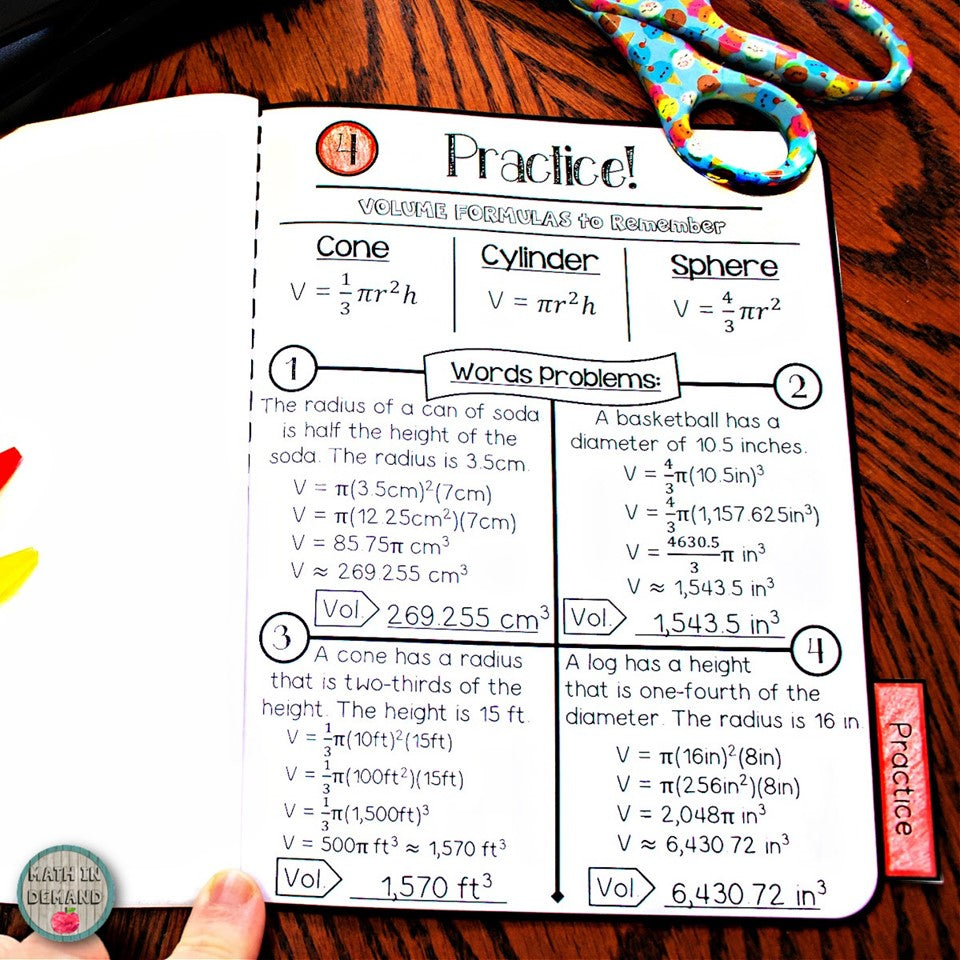 4
Practice!
VOLUME FORMULAS to Remember
Cone
V = 1/3 πr²h
Cylinder
V = πr²h
Sphere
V = 4/3 πr²
Words Problems:
1
The radius of a can of soda
is half the height of the
soda. The radius is 3.5cm.
V = π(3.5cm)²(7cm)
V = π(12.25cm²)(7cm)
V = 85.75π cm³
V ≈ 269.255 cm³
Vol. 269.255 cm³
2
A basketball has a
diameter of 10.5 inches.
V = 4/3 π(10.5in)³
V = 4/3 π(1,157.625in³)
V = 4630.5/3 π in³
V ≈ 1,543.5 in³
Vol. 1,543.5 in³
3
A cone has a radius
that is two-thirds of the
height. The height is 15 ft.
V = 1/3 π(10ft)²(15ft)
V = 1/3 π(100ft²)(15ft)
V = 1/3 π(1,500ft)³
V = 500π ft³ ≈ 1,570 ft³
Vol. 1,570 ft³
4
A log has a height
that is one-fourth of the
diameter. The radius is 16 in.
V = π(16in)²(8in)
V = π(256in²)(8in)
V = 2,048π in³
V ≈ 6,430.72 in³
Vol. 6,430.72 in³
Practice
MATH IN
DEMAND